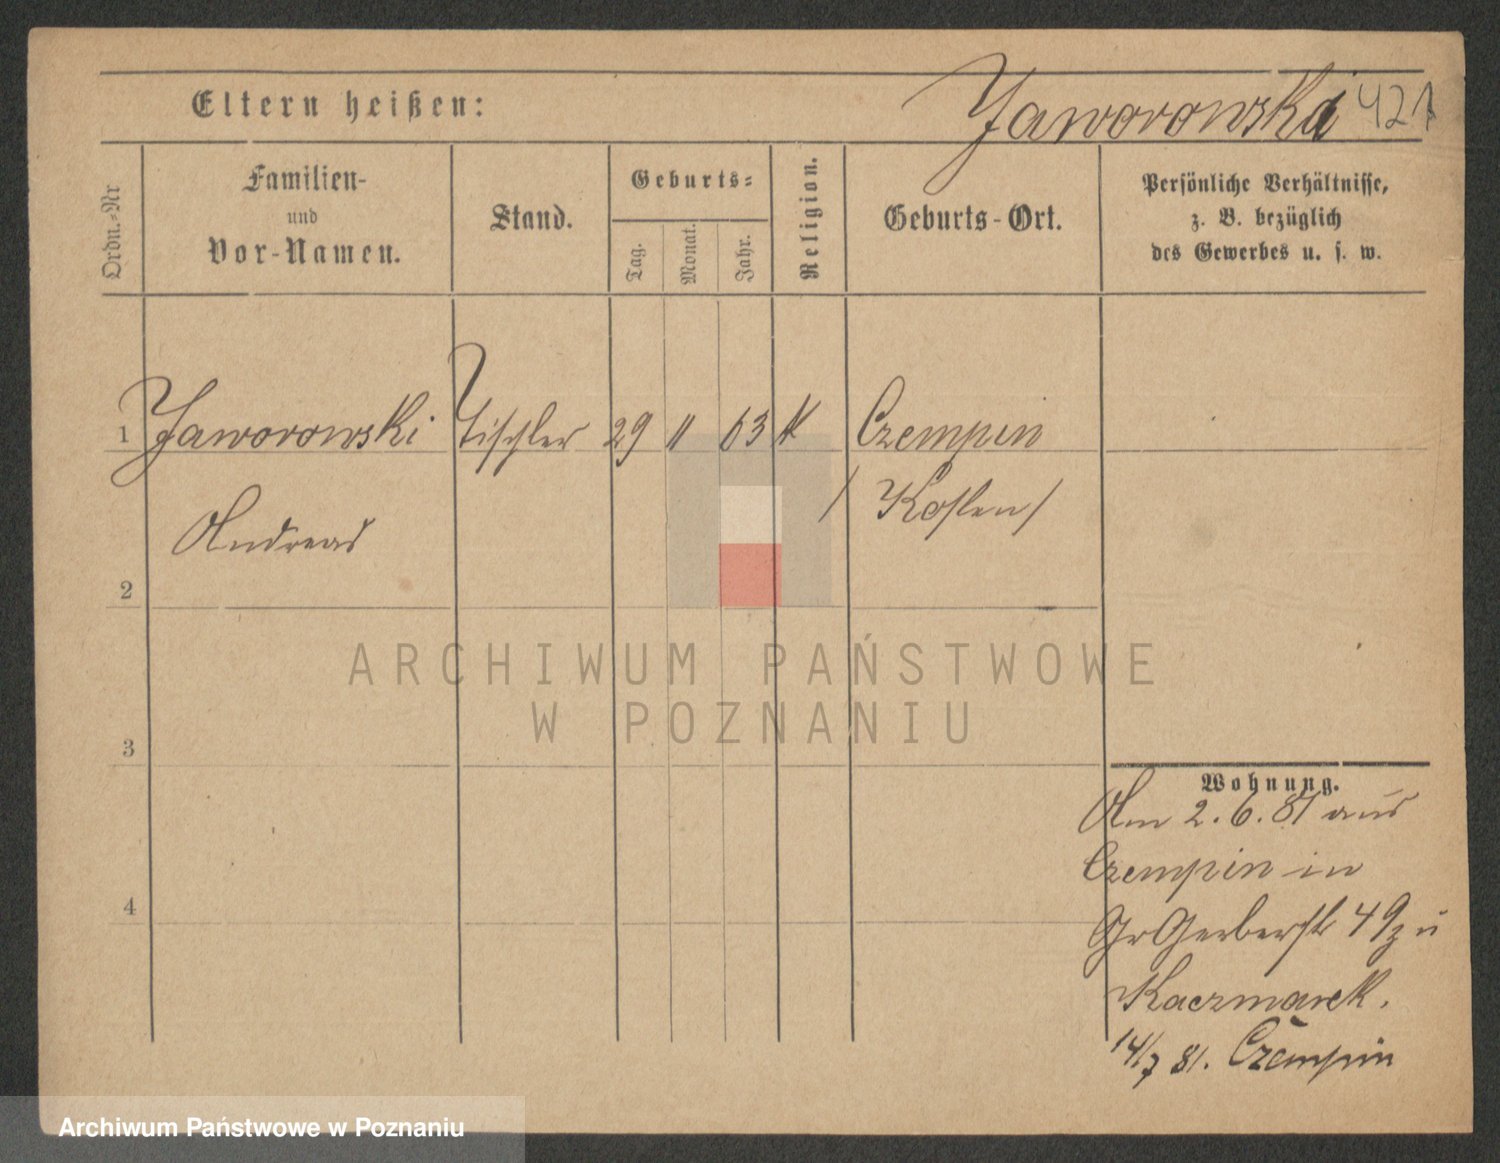 Eltern heißen:
Jaworowski 421
Ordn.-Nr
Familien-
und
Vor-Namen.
Stand.
Geburts-
Tag.
Monat.
Jahr.
Religion.
Geburts-Ort.
Persönliche Verhältnisse,
z. B. bezüglich
des Gewerbes u. s. w.
1 Jaworowski Tischler 29 11 63 K Czempin
Andreas / Kosten /
2
3
4
Wohnung.
Am 2. 6. 81 aus
Czempin in
Gr Gerberstr 49 zu
Kaczmarek.
14/7 81. Czempin
ARCHIWUM PAŃSTWOWE
W POZNANIU
Archiwum Państwowe w Poznaniu